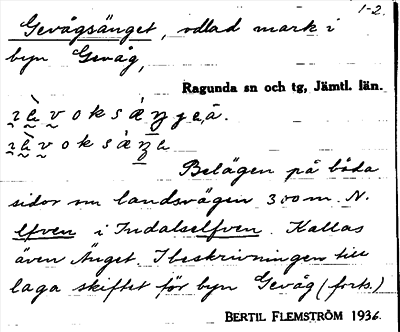 1-2.
Gevågsänget, odlad mark i
byn Gevåg,
Ragunda sn och tg, Jämtl. län.
Belägen på båda
sidor om landsvägen 300 m. N.
lfven i Indalselfven. Kallas
även Änget. I beskrivningen till
laga skiftet för byn Gevåg (forts.)
BERTIL FLEMSTRÖM 1936.